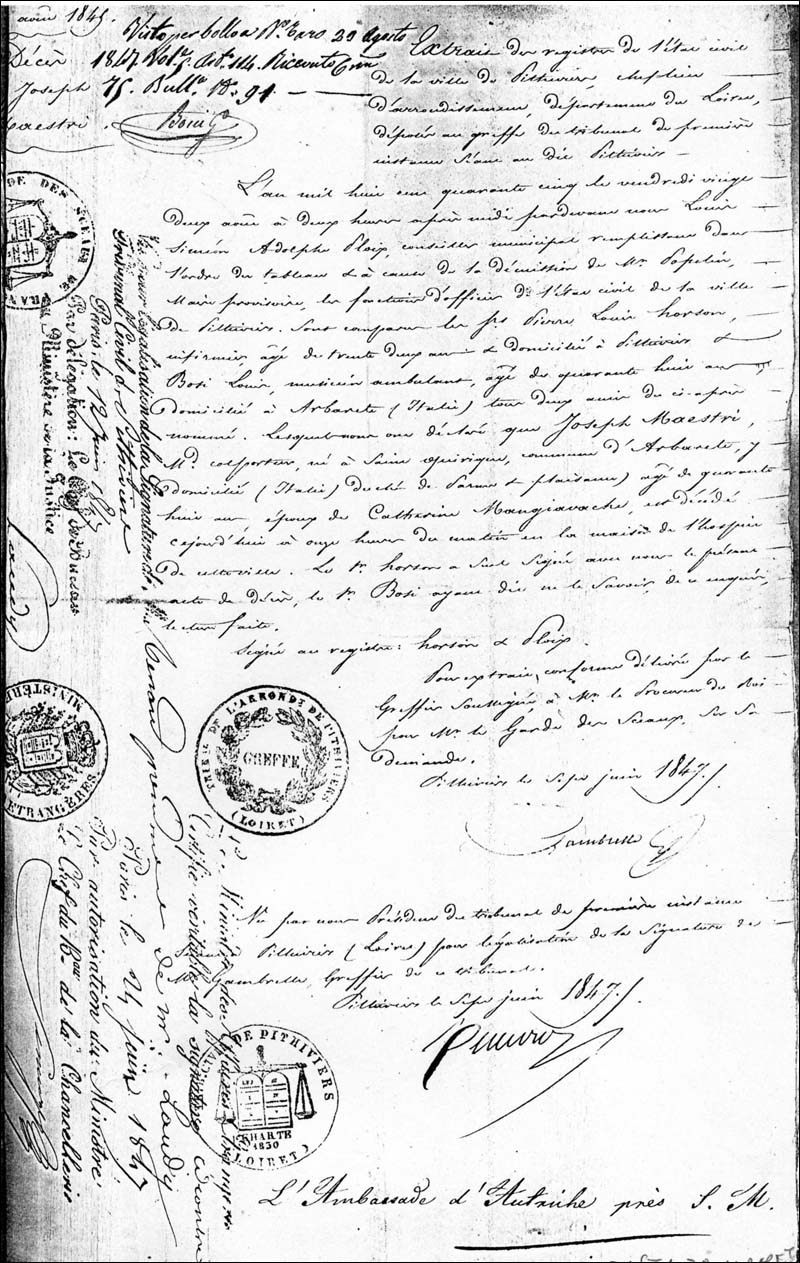 août 1845
Décès
Joseph
Maestri.
Visto per bollo a N. Taro 20 Agosto
1847 Vol. 5. Art. 114. Riceonto Cmi
75. Bull. 18 = 91
Extrait du registre de l'état civil
de la ville de Pithiviers, chef lieu
d'arrondissement, département du Loiret,
déposés au greffe du tribunal de première
instance séant au dit Pithiviers
L'an mil huit cent quarante cinq le vendredi vingt
deux août à deux heures après midi pardevant nous Louis
Siméon Adolphe Ploix, conseiller municipal remplissant dans
l'ordre du tableau & à cause de la démission de Mr. Popelin,
Maire provisoire, les fonctions d'officier de l'état civil de la ville
de Pithiviers. Sont comparus les srs Pierre Louis horson,
infirmier, âgé de trente deux ans & domicilié à Pithiviers &
Bosi Louis, musicien ambulant, âgé de quarante huit ans
domicilié à Arbarete (Italie) tous deux amis du ci-après
nommé. Lesquels nous ont déclaré que Joseph Maestri,
Md. colporteur, né à Saint Quirique, commune d'Arbarete, y
domicilié (Italie) duché de Parme & plaisance) âgé de quarante
huit ans, époux de Catherine Mangiavache, est décédé
cejourd'hui à onze heures du matin en la maison de l'hospice
de cette ville. Le sr. horson a seul signé avec nous le présent
acte de décès, le sr. Bosi ayant dit ne le savoir, de ce enquis,
lecture faite.
Signé au registre: horson & Ploix.
Pour extrait conforme délivré par le
Greffier soussigné, à Mr. le Procureur du Roi
pour Mr. le Garde des Sceaux, sur sa
demande.
Pithiviers le sept juin 1847
Vu par nous Président du tribunal de première instance
séant Pithiviers (Loiret) pour légalisation de la signature de
Mr. Lambrette, Greffier de ce tribunal.
Pithiviers le sept juin 1847
L'Ambassade d'Autriche près S. M.
Vu pour légalisation de la signature de
Tribunal Civil de Pithiviers
Paris, le 12 juin 1847
Par délégation: Le
au Ministère de la Justice
Le Ministre des Affaires Etrangères
Certifie véritable la signature ci contre
de Mr. Laudy
Paris le 24 juin 1847
Par autorisation du Ministre
Le Chef du Bau de la Chancellerie
DES SCEAUX DE
MINISTÈRE
ETRANGÈRES
TRIB. DE L'ARRONDt DE PITHIVIERS
GREFFE
(LOIRET)
DE PITHIVIERS
CHARTE
1830
(LOIRET)